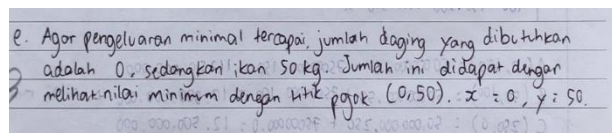 e. Agar pengeluaran minimal tercapai, jumlah daging yang dibutuhkan
adalah 0, sedangkan ikan 50 kg. Jumlah ini didapat dengan
melihat nilai minimum dengan titik pojok (0,50). x = 0, y = 50.